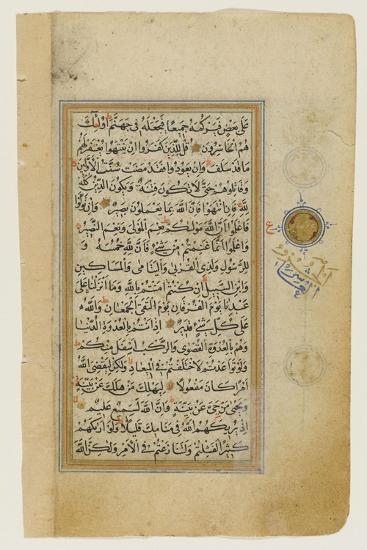 عَلىٰ بَعضٍ فَيَركُمَهُ جَميعًا فَيَجعَلَهُ في جَهَنَّمَ أُولٰئِكَ
هُمُ الخاسِرونَ قُل لِلَّذينَ كَفَروا إِن يَنتَهوا يُغفَر لَهُم
ما قَد سَلَفَ وَإِن يَعودوا فَقَد مَضَت سُنَّتُ الأَوَّلينَ
وَقاتِلوهُم حَتّىٰ لا تَكونَ فِتنَةٌ وَيَكونَ الدّينُ كُلُّهُ
لِلَّهِ فَإِنِ انتَهَوا فَإِنَّ اللَّهَ بِما يَعمَلونَ بَصيرٌ وَإِن تَوَلَّوا
فَاعلَموا أَنَّ اللَّهَ مَولٰيكُم نِعمَ المَولىٰ وَنِعمَ النَّصيرُ
وَاعلَموا أَنَّما غَنِمتُم مِن شَيءٍ فَأَنَّ لِلَّهِ خُمُسَهُ وَ
لِلرَّسولِ وَلِذِي القُربىٰ وَاليَتامىٰ وَالمَساكينِ
وَابنِ السَّبيلِ إِن كُنتُم آمَنتُم بِاللَّهِ وَما أَنزَلنا عَلىٰ
عَبدِنا يَومَ الفُرقانِ يَومَ التَقَى الجَمعانِ وَاللَّهُ
عَلىٰ كُلِّ شَيءٍ قَديرٌ إِذ أَنتُم بِالعُدوَةِ الدُّنيا
وَهُم بِالعُدوَةِ القُصوىٰ وَالرَّكبُ أَسفَلَ مِنكُم
وَلَو تَواعَدتُم لَاختَلَفتُم فِي الميعادِ وَلٰكِن لِيَقضِيَ اللَّهُ
أَمرًا كانَ مَفعولًا لِيَهلِكَ مَن هَلَكَ عَن بَيِّنَةٍ
وَيَحيىٰ مَن حَيَّ عَن بَيِّنَةٍ وَإِنَّ اللَّهَ لَسَميعٌ عَليمٌ
إِذ يُريكَهُمُ اللَّهُ في مَنامِكَ قَليلًا وَلَو أَراكَهُم
كَثيرًا لَفَشِلتُم وَلَتَنازَعتُم فِي الأَمرِ وَلٰكِنَّ اللَّهَ